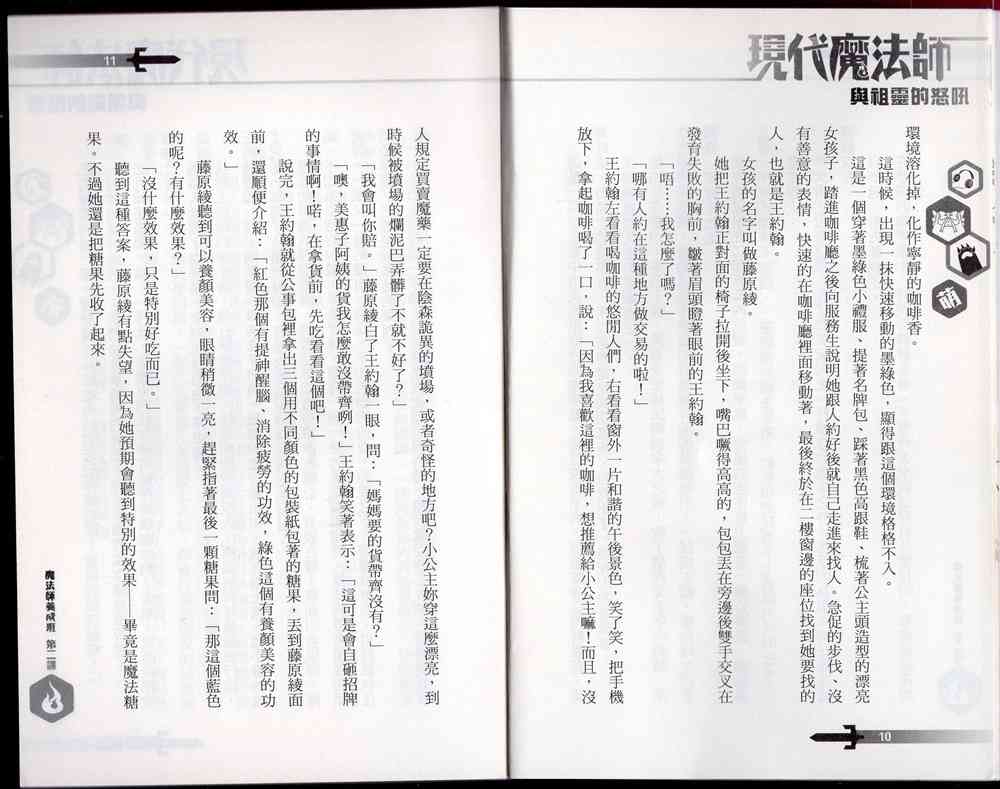 現代魔法師
與祖靈的怒吼
萌
環境溶化掉，化作寧靜的咖啡香。
這時候，出現一抹快速移動的墨綠色，顯得跟這個環境格格不入。
這是一個穿著墨綠色小禮服、提著名牌包、踩著黑色高跟鞋、梳著公主頭造型的漂亮
女孩子，踏進咖啡廳之後向服務生說明她跟人約好後就自己走進來找人。急促的步伐、沒
有善意的表情，快速的在咖啡廳裡面移動著，最後終於在二樓窗邊的座位找到她要找的
人，也就是王約翰。
女孩的名字叫做藤原綾。
她把王約翰正對面的椅子拉開後坐下，嘴巴噘得高高的，包包丟在旁邊後雙手交叉在
發育失敗的胸前，皺著眉頭瞪著眼前的王約翰。
「唔……我怎麼了嗎？」
「哪有人約在這種地方做交易的啦！」
王約翰左看看喝咖啡的悠閒人們，右看看窗外一片和諧的午後景色，笑了笑，把手機
放下，拿起咖啡喝了一口，說：「因為我喜歡這裡的咖啡，想推薦給小公主嘛！而且，沒
10
11
人規定買賣魔藥一定要在陰森詭異的墳場，或者奇怪的地方吧？小公主妳穿這麼漂亮，到
時候被墳場的爛泥巴弄髒了不就不好了？」
「我會叫你賠。」藤原綾白了王約翰一眼，問：「媽媽要的貨帶齊沒有？」
「噢，美惠子阿姨的貨我怎麼敢沒帶齊咧！」王約翰笑著表示：「這可是會自砸招牌
的事情啊！喏，在拿貨前，先吃看看這個吧！」
說完，王約翰就從公事包裡拿出三個用不同顏色的包裝紙包著的糖果，丟到藤原綾面
前，還順便介紹：「紅色那個有提神醒腦、消除疲勞的功效，綠色這個有養顏美容的功
效。」
藤原綾聽到可以養顏美容，眼睛稍微一亮，趕緊指著最後一顆糖果問：「那這個藍色
的呢？有什麼效果？」
「沒什麼效果，只是特別好吃而已。」
聽到這種答案，藤原綾有點失望，因為她預期會聽到特別的效果——畢竟是魔法糖
果。不過她還是把糖果先收了起來。
魔法師養成班 第二課